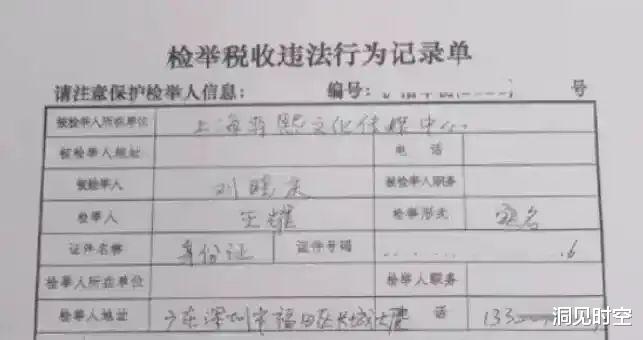 检举税收违法行为记录单
请注意保护检举人信息: 编号: 号
被检举人所在单位 上海 熙文化传媒中心
被检举人地址 电 话
被检举人 刘晓庆 被检举人职务
检举人 王耀 检举形式 实名
证件名称 身份证 证件号码 6
检举人所在单位 检举人职务
检举人地址 广东深圳市福田区长城大厦 话 133
洞见时空